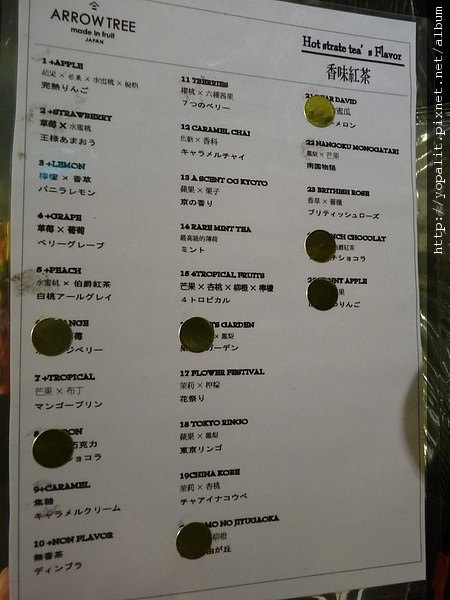 ARROW TREE
made in fruit
JAPAN
Hot strate tea's Flavor
香味紅茶
1 +APPLE
蘋果 × 芒果 × 水蜜桃 × 優格
完熟りんご
2 +STRAWBERRY
草莓 × 水蜜桃
王様あまおう
3 +LEMON
檸檬 × 香草
バニラレモン
4 +GRAPE
草莓 × 葡萄
ベリーグレープ
5 +PEACH
水蜜桃 × 伯爵紅茶
白桃アールグレイ
ANGE
莓
ジベリー
7 +TROPICAL
芒果 × 布丁
マンゴープリン
ON
巧克力
ショコラ
9+CARAMEL
焦糖
キャラメルクリーム
10 +NON FLAVOR
無香茶
ディンブラ
11 7BERRIES
櫻桃 × 六種莓果
7つのベリー
12 CARAMEL CHAI
焦糖 × 香料
キャラメルチャイ
13 A SCENT OG KYOTO
蘋果 × 栗子
京の香り
14 RARE MINT TEA
最高級的薄荷
ミント
15 4TROPICAL FRUITS
芒果 × 杏桃 × 柳橙 × 檸檬
4トロピカル
S GARDEN
× 鳳梨
ガーデン
17 FLOWER FESTIVAL
茉莉 × 檸檬
花祭り
18 TOKYO RINGO
蘋果 × 鳳梨
東京リンゴ
19CHINA KOBE
茉莉 × 杏桃
チャアイナコウベ
MO NO JIYUGAOKA
柳橙
由が丘
21 DAVID
蜜瓜
ーメロン
22 NANGOKU MONOGATARI
鳳梨 × 芒果
南国物語
23 BRITHISH ROSE
香草 × 薔薇
ブリティッシュローズ
CH CHOCOLAT
伯爵紅茶
チショコラ
NY APPLE
果
りんご
http://yopalit.pixnet.net/album